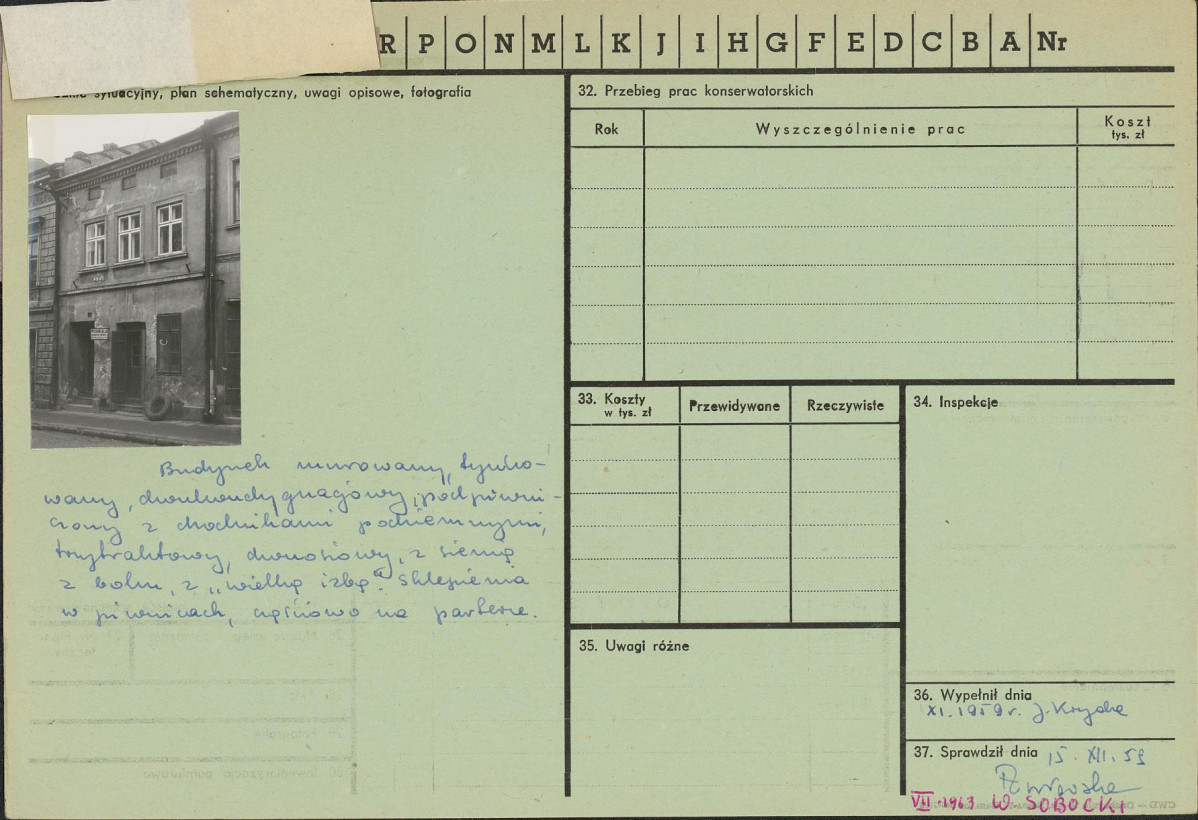 R P O N M L K J I H G F E D C B A Nr
sytuacyjny, plan schematyczny, uwagi opisowe, fotografia
Budynek murowany, tynko-
wany, dwukondygnacjowy, podpiwni-
czony z chodnikami podziemnymi,
trzytraktowy, dwuosiowy, z sienią
z boku, z „wielką izbą". Sklepienia
w piwnicach, częściowo na parterze.
32. Przebieg prac konserwatorskich
Rok
Wyszczególnienie prac
Koszt
tys. zł
33. Koszty
w tys. zł
Przewidywane
Rzeczywiste
34. Inspekcje
35. Uwagi różne
36. Wypełnił dnia
XI. 1959 r. J.
37. Sprawdził dnia 15. XII. 59
VII. 1963 W. SOBOCKI